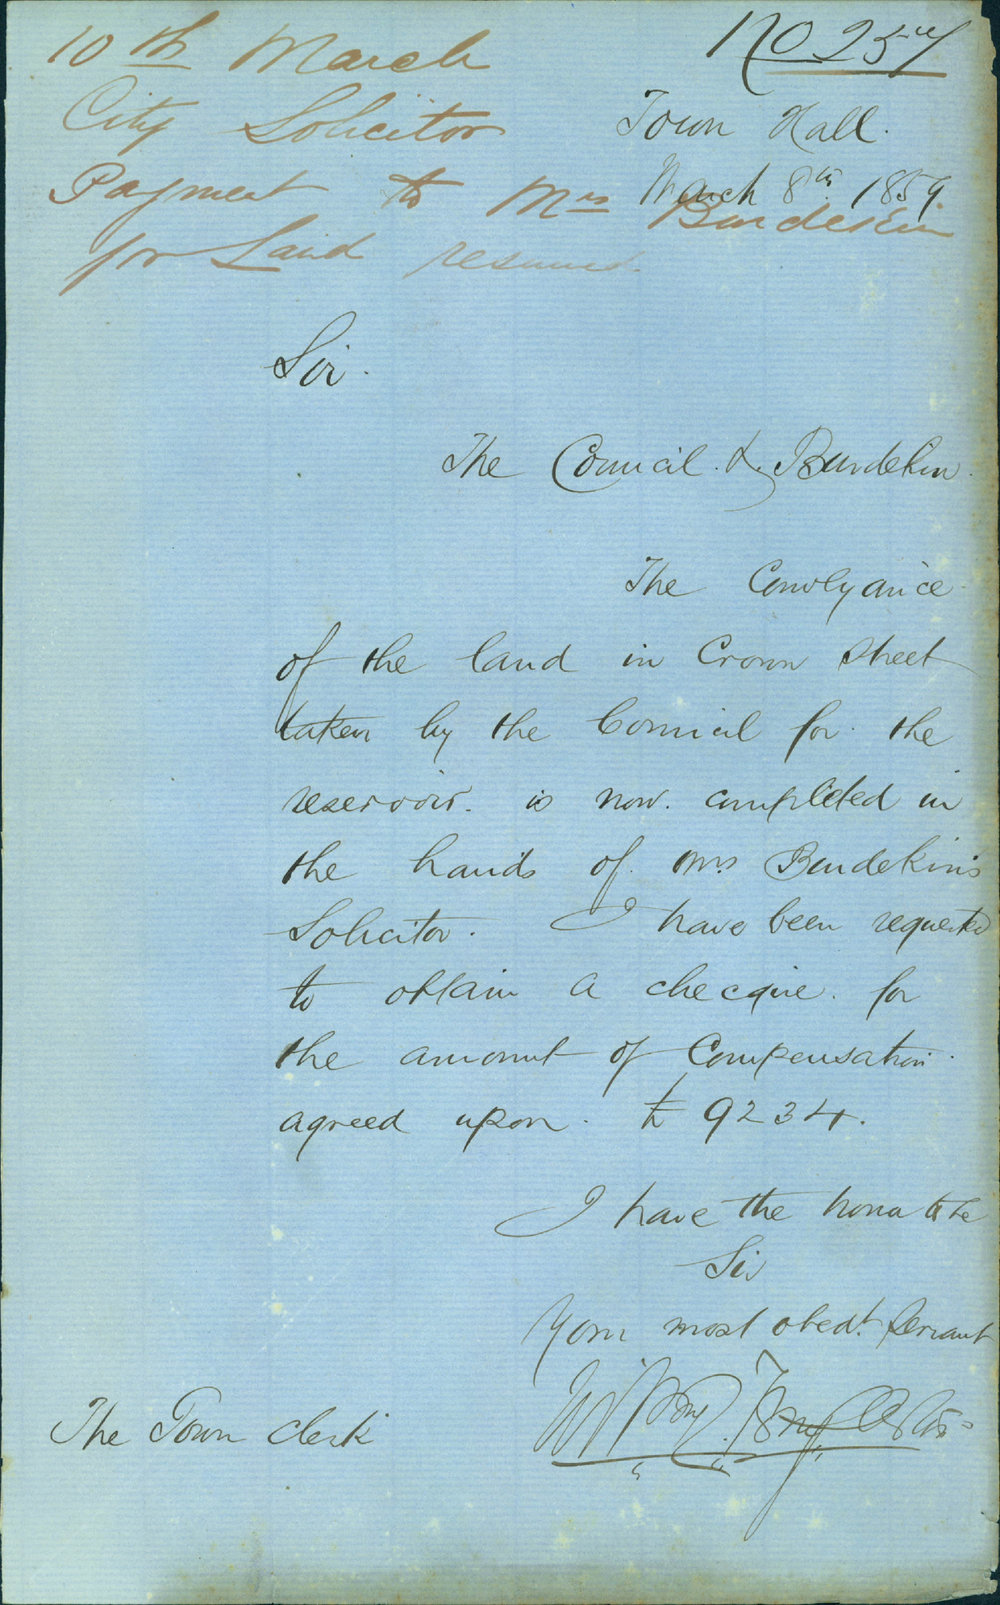 10th March
City Solicitor
Payment to Mrs Burdekin
for Land resumed.
No 257
Town Hall.
March 8th 1859
Sir.
The Council & Burdekin.
The Conveyance
of the land in Crown Street
taken by the Council for the
reservoir. is now. completed in
the hands of Mrs Burdekin's
Solicitor. I have been requested
to obtain a checque. for
the amount of Compensation.
agreed upon. £ 9234.
I have the honor to be
Sir
Your most obedt. Servant
The Town Clerk